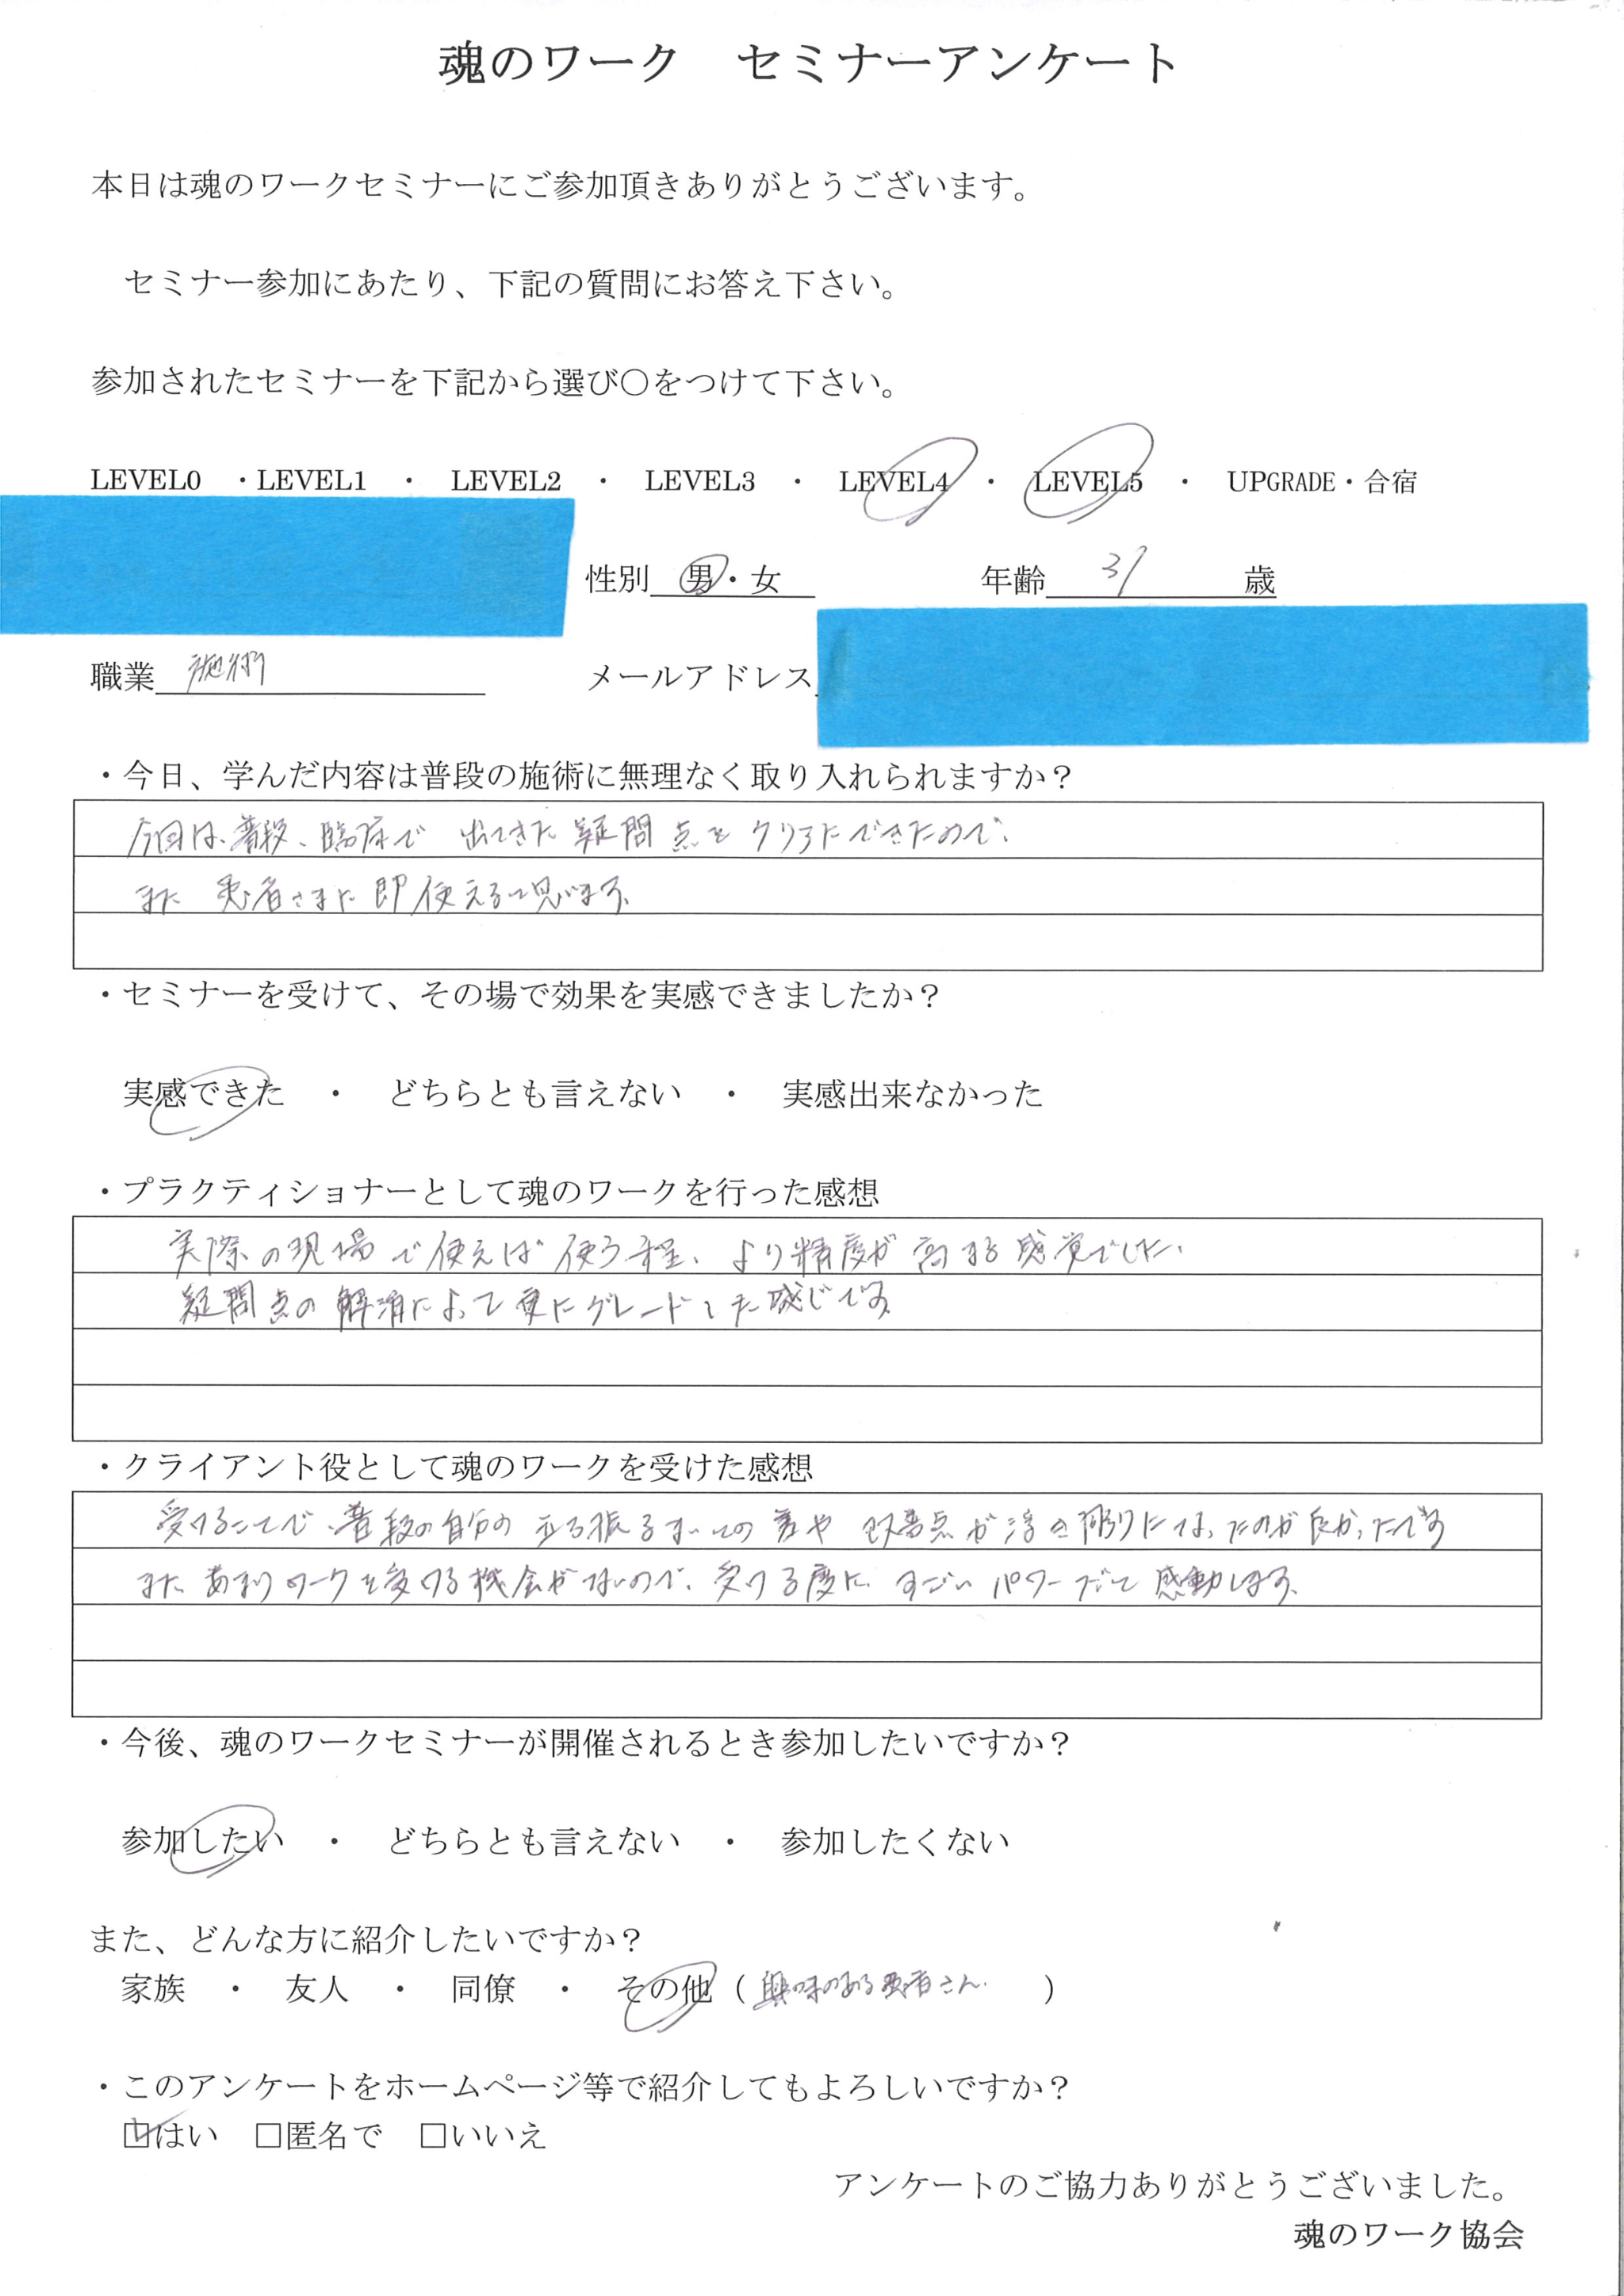 魂のワーク　セミナーアンケート
本日は魂のワークセミナーにご参加頂きありがとうございます。
セミナー参加にあたり、下記の質問にお答え下さい。
参加されたセミナーを下記から選び〇をつけて下さい。
LEVEL0　・LEVEL1　・　LEVEL2　・　LEVEL3　・　LEVEL4　・　LEVEL5　・　UPGRADE・合宿
性別　男・女　年齢　31　歳
職業　施術　メールアドレス
・今日、学んだ内容は普段の施術に無理なく取り入れられますか？
今回は、普段、臨床で 出てきた 疑問点を クリアにできたので、
また 患者さまに 即使えると思います。
・セミナーを受けて、その場で効果を実感できましたか？
実感できた　・　どちらとも言えない　・　実感出来なかった
・プラクティショナーとして魂のワークを行った感想
実際の現場で使えば使う程、より精度が高まる感覚でした、
疑問点の解消によって更にグレードした感じです。
・クライアント役として魂のワークを受けた感想
受けることで、普段の自分の立ち振るまいの 改善点が浮き彫りになったのが良かったです
また あまりワークを受ける機会がないので、受ける度に すごい パワーだと感動します。
・今後、魂のワークセミナーが開催されるとき参加したいですか？
参加したい　・　どちらとも言えない　・　参加したくない
また、どんな方に紹介したいですか？
家族　・　友人　・　同僚　・　その他（興味のある患者さん　）
・このアンケートをホームページ等で紹介してもよろしいですか？
☑はい　□匿名で　□いいえ
アンケートのご協力ありがとうございました。
魂のワーク協会